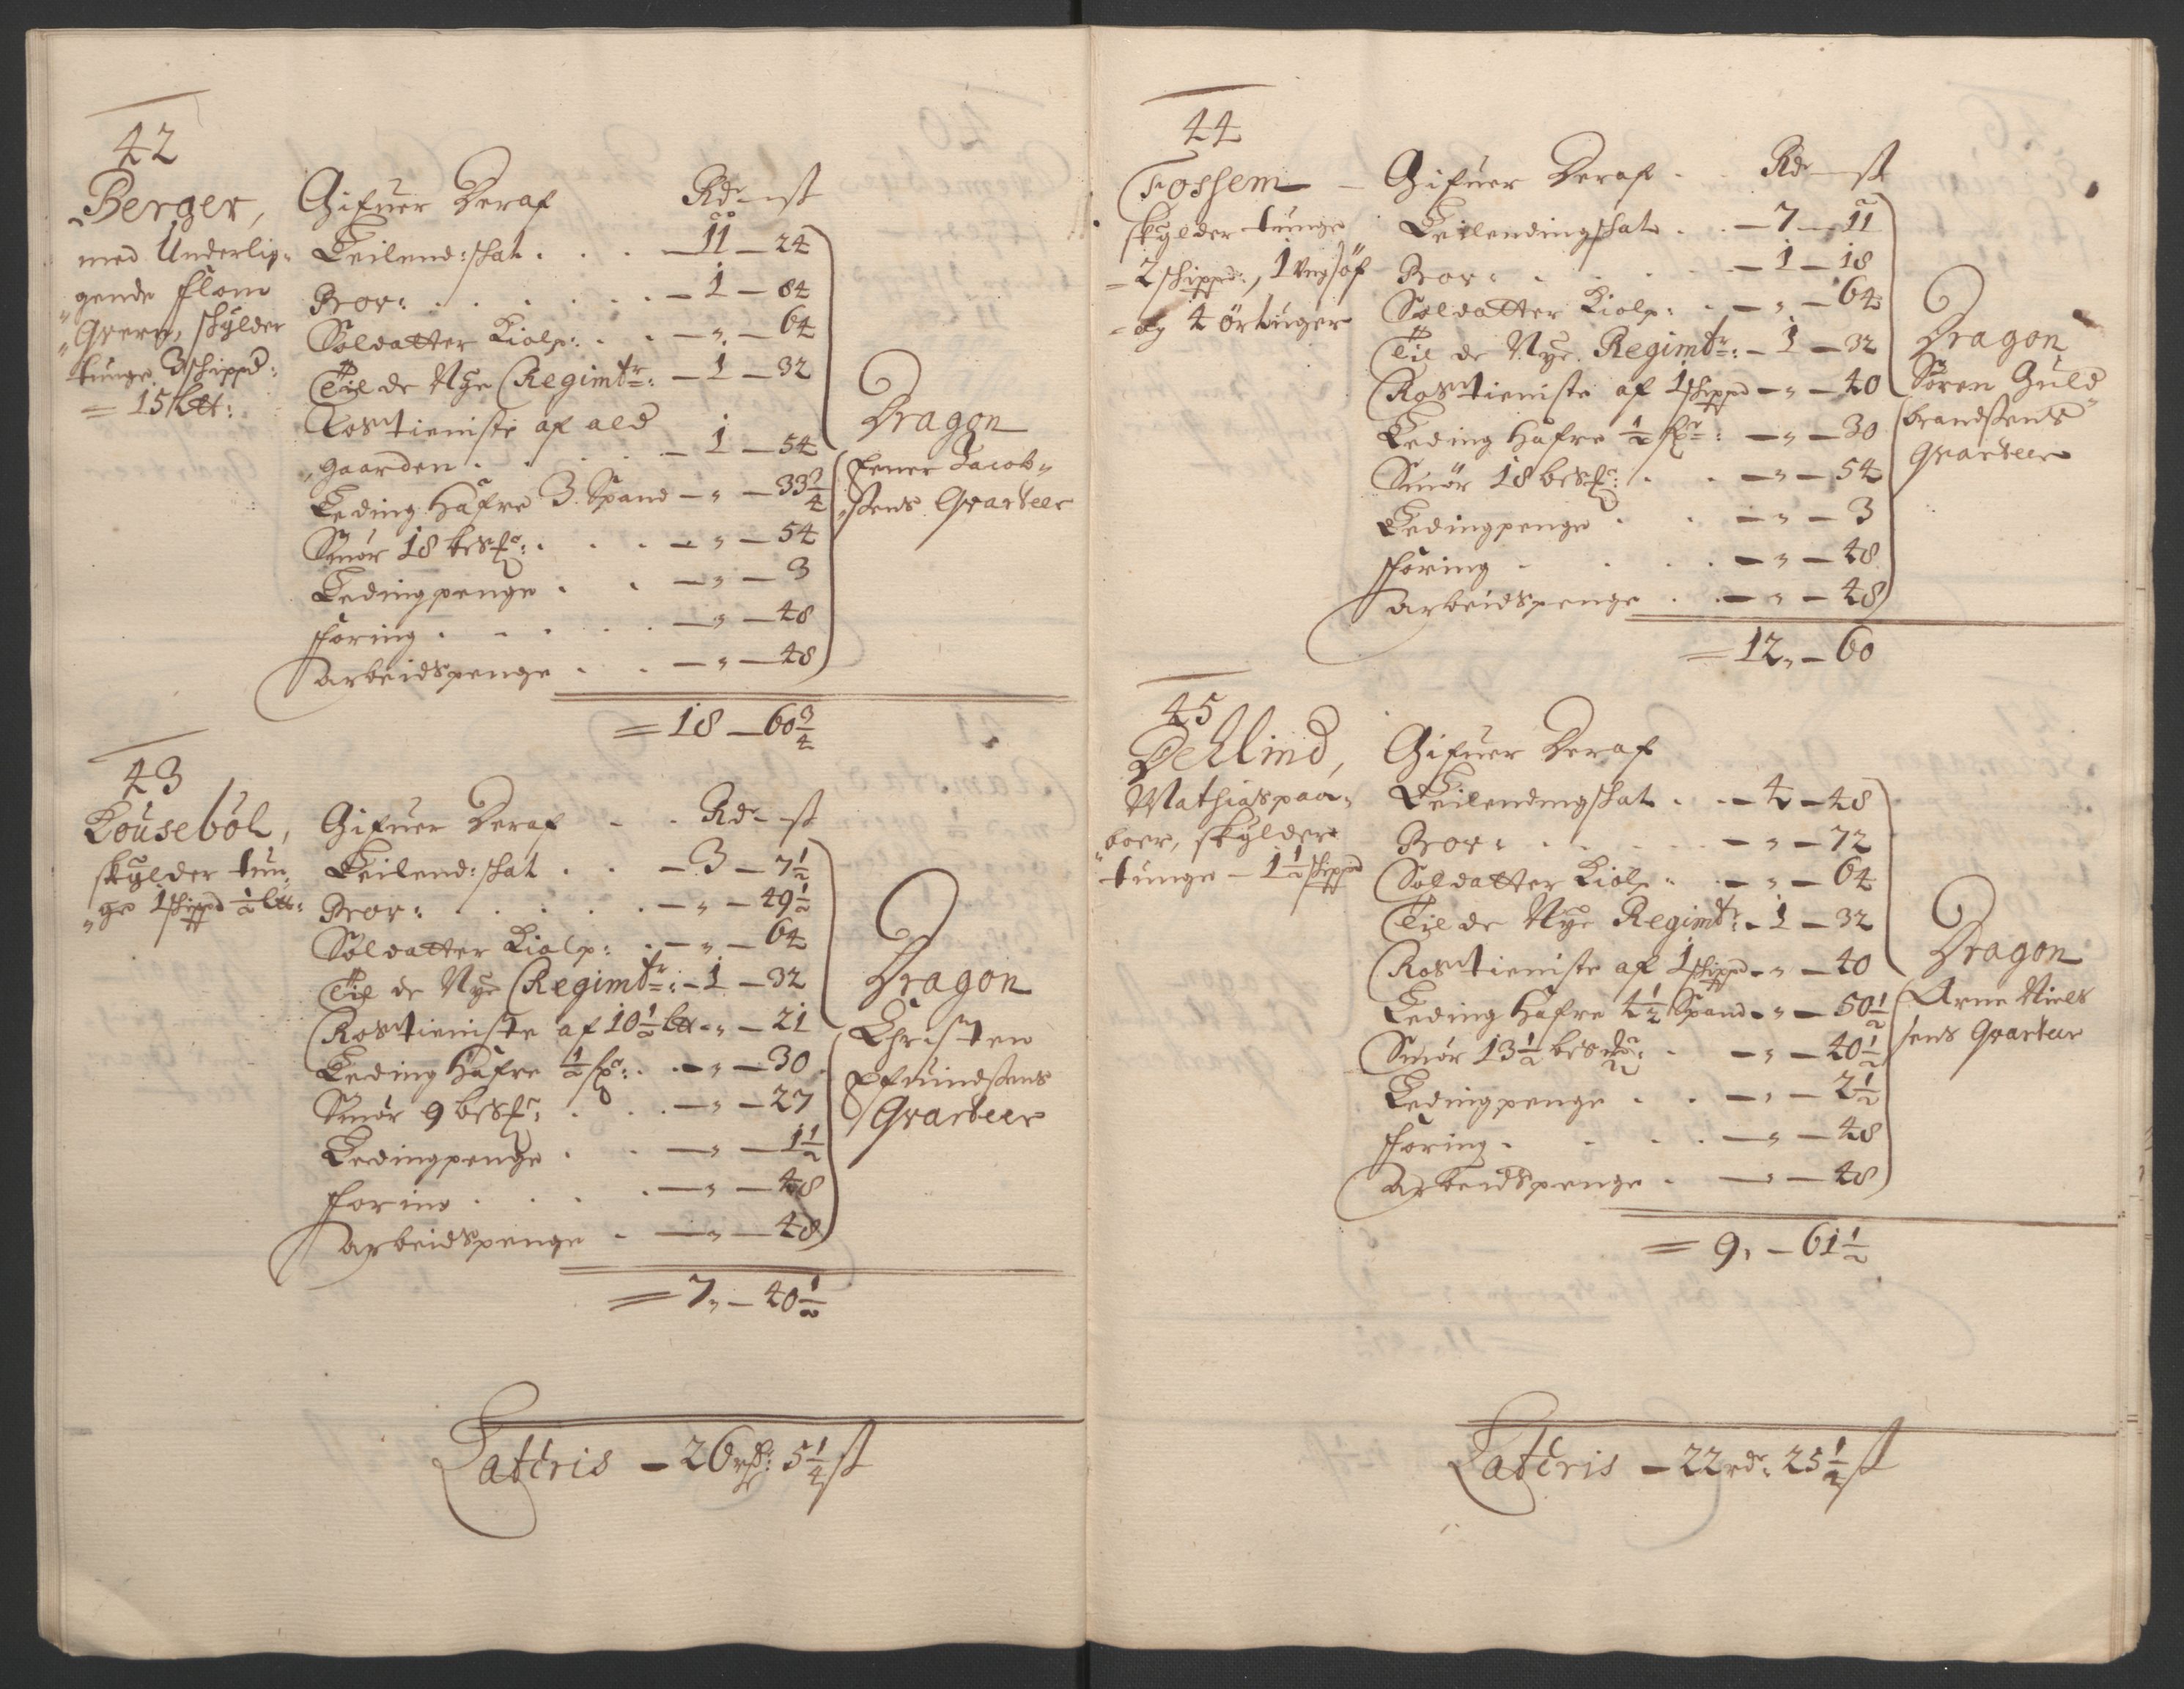 42
Berger,
med Underlig-
gende flom
Qvern, skylder
tunge 3 schippd:
= 15 ltt:
Gifuer Deraf Rdr st
Leilend: skat . . . 11 — 24
Ror: . . . . 1 — 84
Soldatter Kiolp: . . — „ — 64
Til de Nye Regimtr: — 1 — 32
Rostieniste af ald
gaarden . . . . 1 — 54
Leding Hafre 3 Spand — „ — 33 3/4
Smör 18 besr: . . . — „ — 54
Ledingpenge . . — „ — 3
fforing . . . . — „ — 48
Arbeidspenge . . — „ — 48
= 18 — 60 3/4
Dragon
Pener Jacob-
sens Qvarteer
43
Kousebøl,
skylder tun-
ge 1 schippd 1/2 ltt:
Gifuer Deraf - . Rdr st
Leilend: skat . . — 3 — 7 1/2
Ror: . . . . — „ — 49 1/2
Soldatter Kiolp: . — „ — 64
Til de Nye Regimtr: — 1 — 32
Rostieniste af 10 1/2 ltt - „ — 21
Leding Hafre 1/2 sr: . . — „ — 30
Smör 9 besr: . . . — „ — 27
Ledingpenge . . — „ — 1 1/2
fforing . . . . — „ — 48
Arbeidspenge . — „ — 48
= 7 „ — 40 1/2
Dragon
Christen
Efuindsens
Qvarteer
Lateris — 26 rdr: 5 1/4 st
44
Fossem —
skylder tunge
= 2 schippd:, 1
og 4 örtuger
Gifuer Deraf . . Rdr — st
Leilendingskat . . — 7 — 11
Ror: . . . . — 1 — 18
Soldatter Kiolp: . — „ — 64
Til de Nye Regimtr: — 1 — 32
Rostieniste af 1 schippd — „ — 40
Leding Hafre 1/2 sr: — „ — 30
Smör 18 besr: . . — „ — 54
Ledingpenge . . — „ — 3
fforing . . . . — „ — 48
Arbeidspenge . . — „ — 48
= 12 „ — 60
Dragon
Sören Guld-
brandsens
Qvarteer
45
Dehlind,
Mathias paa-
boer, skylder
tunge — 1 1/2 schippd
Gifuer Deraf
Leilendingskat . . — 4 — 48
Ror: . . . . — „ — 72
Soldatter Kiolp: . — „ — 64
Til de Nye Regimtr: — 1 — 32
Rostieniste af 1 schippd — „ — 40
Leding Hafre 4 1/2 Spand - „ — 50 1/2
Smör 13 1/2 besmr: . — „ — 40 1/2
Ledingpenge . . — „ — 2 1/2
fforing . . . . — „ — 48
Arbeidspenge . — „ — 48
= 9 „ — 61 1/2
Dragon
Arne Niels
sens Qvarteer
Lateris — 22 rdr: 25 1/2 st